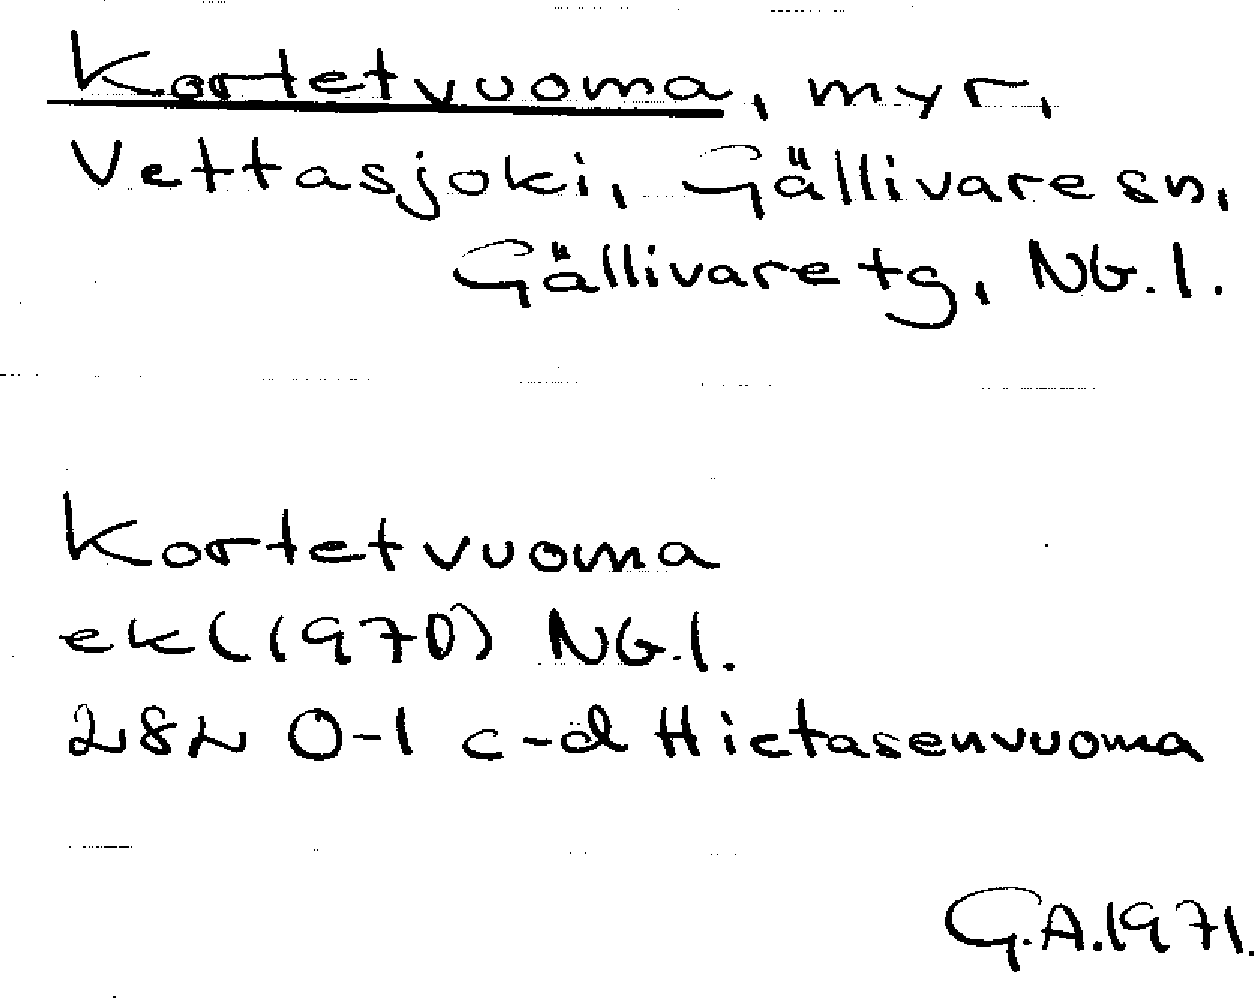 Kortetvuoma, myr,
Vettasjoki, Gällivare sn,
Gällivare tg, NG.l.
Kortetvuoma
ek (1970) NG.l.
28L 0-1 c-d Hietasenvuoma
G.A. 1971.